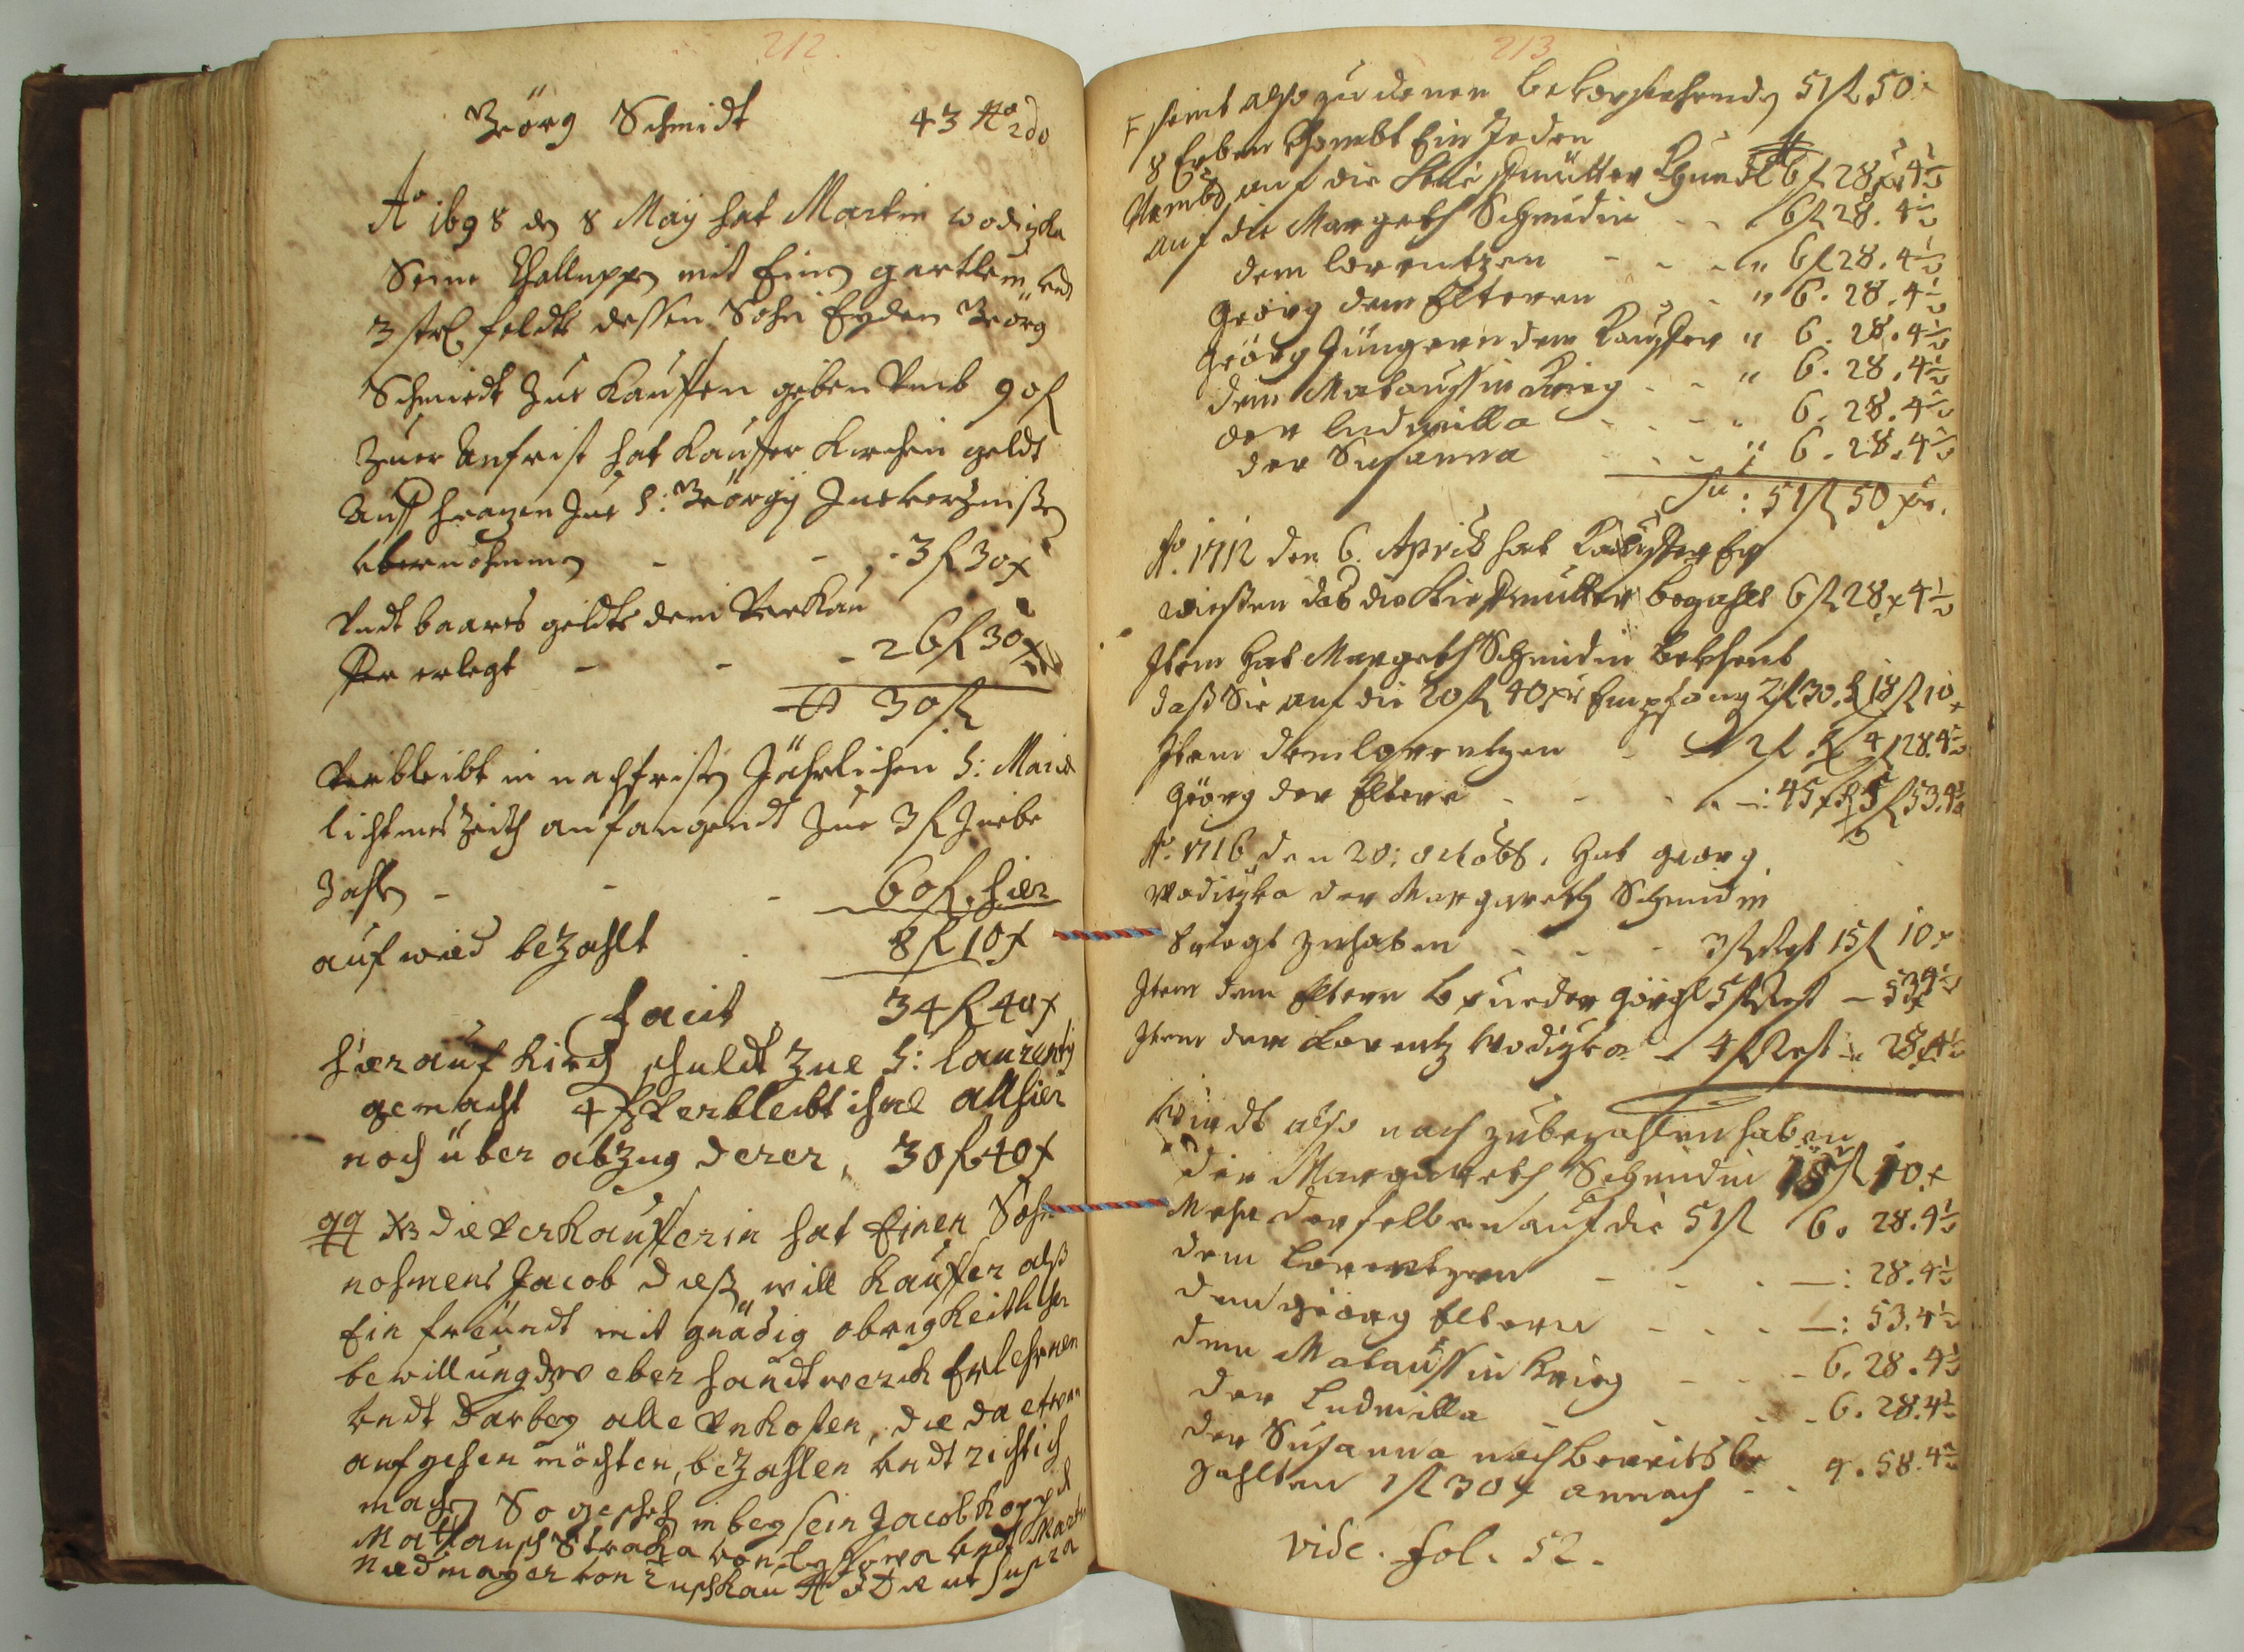 212.
Geörg Schmidt 43 No 2do
Ao 1698 den 8 May hat Martin Wodizka
Seine Challuppen mit Einen gartlein undt
3 str. feldts dessen Sohn Eyden Geörg
Schmidt Zue Kauffen geben Vmb 90 f
Zuer Anfrist hat Kauffer Kirchen geldt
Auff Zue S: Geörgy
übernohmmen - - 3 f 30 x
Vndt baares geldts dem Verkau
ffer erlegt - - - 26 f 30 x
30 fl
Verbleibt in nachfristen Jährlichen S: Maria
lichtmes Zeith anfangendt Zue 3 f Zuebe
Zahlen - - - 60 f. hier
auf wied bezahlt 8 fl 10 x
facit 34 fl 40 x
hier auf Kirch schuldt Zue S: Laurenty
gemacht 4 f Verbleibt ihne allhier
noch über abzug derer, 30 f 40 x
NB die Verkaufferin hat Einen Sohn
nahmens Jacob dieß will Kauffer alß
Ein freündt mit gnädig obrigkeitlicher
bewillung das weber handtwerck Erlehrnen
undt darbey alle Vnkosten, die da etwan
aufgehen möchten, bezahlen undt richtich
machen So geschehen in beysein Jacob Koppel
Mathausch Straka von undt Martin
Niedmayer von Luschkau Ao Die ut supra
213
seint also zu denen bevorstehenden 51 fl 50 x
8 Erben khombt Ein Jeden
Nembl. auf die Stieffmutter 6 fl 28 xr 4½
auf die Margeth Schmidin - - 6 fl 28. 4½
dem Lorentzen - - - 6 fl 28. 4½
Geörg dem Elteren - " 6. 28. 4½
Geörg Jüngern dem Kauffer " 6. 28. 4½
dem Matauschin Krieg - - " 6. 28. 4½
der Ludmilla - - - 6. 28. 4½
der Susanna - - " 6. 28. 4½
Su: 51 fl 50 xr.
Ao. 1712 den 6. Aprill hat Kauffer Er
wießen daß die Stieffmutter bezahlt 6 fl 28 x 4½
Item hat Margeth Schmidin bekhent
daß Sie auf die 20 fl 40 xr Empfang 2 fl 30. R 18 fl 10 x
Item dem Lorentzen - 2 fl R 4 fl 28. 4½
Geörg der Eltere - - - : 45 x R 5 fl 53. 4½
Ao. 1716 den 20: Octobr. hat georg
Wodizka der Margareth Schmidin
Erlegt zuhaben - - - 3 fl Rest 15 fl 10 x
Item dem Eltern Brueder Görgl 5 fl Rest - 53 x 4½
Item dem Lorentz Wodizka - 4 fl Rest - 28 x 4½
Wirdt also noch zubezahlen haben
der Margareth Schmidin 18 fl 10 x
Mehr derselben auf die 51 fl 6. 28. 4½
dem Lorentzen - - - : 28. 4½
dem Geörg Eltern - - - : 53. 4½
dem Matauschin Krieg - - - 6. 28. 4½
der Ludmilla - - - 6. 28. 4½
der Susanna nach bereits be
zahlten 1 fl 30 x annoch - - 4. 58. 4½
vide. fol. 52.